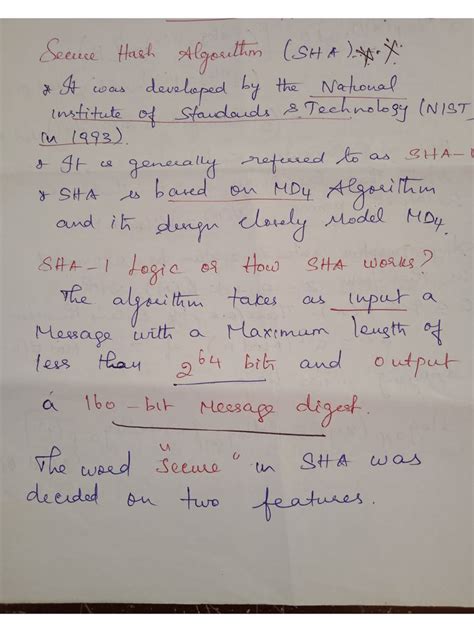 Secure Hash Algorithm (SHA).
* It was developed by the National
institute of Standards & Technology (NIST
in 1993).
* It is generally refered to as SHA-
* SHA is based on MD4 Algorithm
and its design closely Model MD4.
SHA-1 Logic or How SHA works?
The algorithm takes as input a
Message with a Maximum length of
less than 2^64 bits and output
a 160-bit Message digest.
The word "Secure" in SHA was
decided on two features.